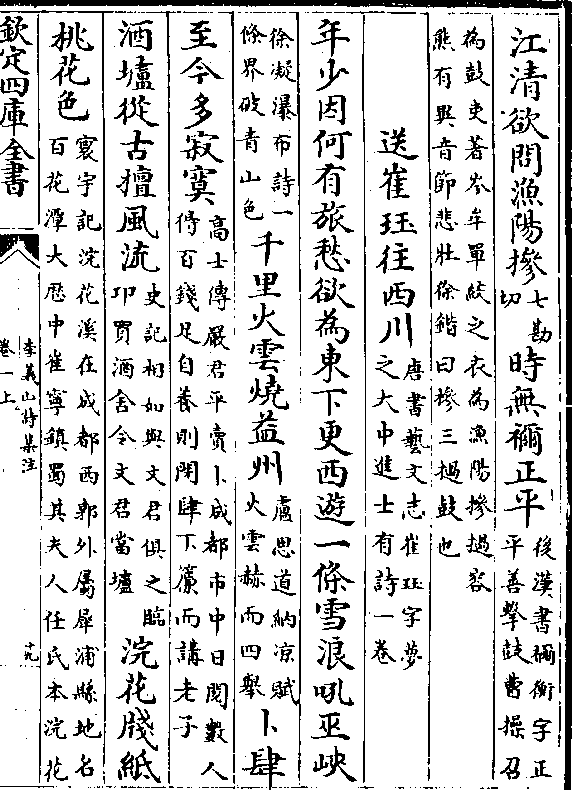 江清欲問漁陽摻七勘切時無禰正平後漢書禰衡字正平善擊鼓曹操召
為鼓吏著岑牟單絞之衣為漁陽摻撾容態有異音節悲壯徐鍇曰摻三撾鼓也
送崔珏往西川唐書藝文志崔珏字夢之大中進士有詩一卷
年少因何有旅愁欲為東下更西遊一條雪浪吼巫峽
徐凝瀑布詩一條界破青山色千里火雲燒益州盧思道納凉賦火雲赫而四舉卜肆
至今多寂寞高士傳嚴君平賣卜成都市中日閱數人得百錢足自養則閉肆下簾而講老子
酒壚從古擅風流史記相如與文君俱之臨卭買酒舍令文君當壚浣花牋紙
桃花色寰宇記浣花溪在成都西郭外屬犀浦縣地名百花潭大厯中崔寧鎮蜀其夫人任氏本浣花
欽定四庫全書
李義山詩集注
卷一上
十九